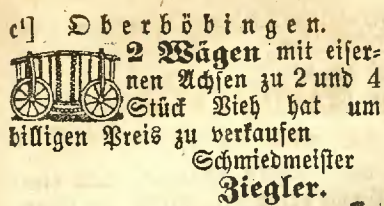 c¹] Oberböbingen.
2 Wägen mit eiser=
nen Achsen zu 2 und 4
Stück Vieh hat um
billigen Preis zu verkaufen
Schmiedmeister
Ziegler.